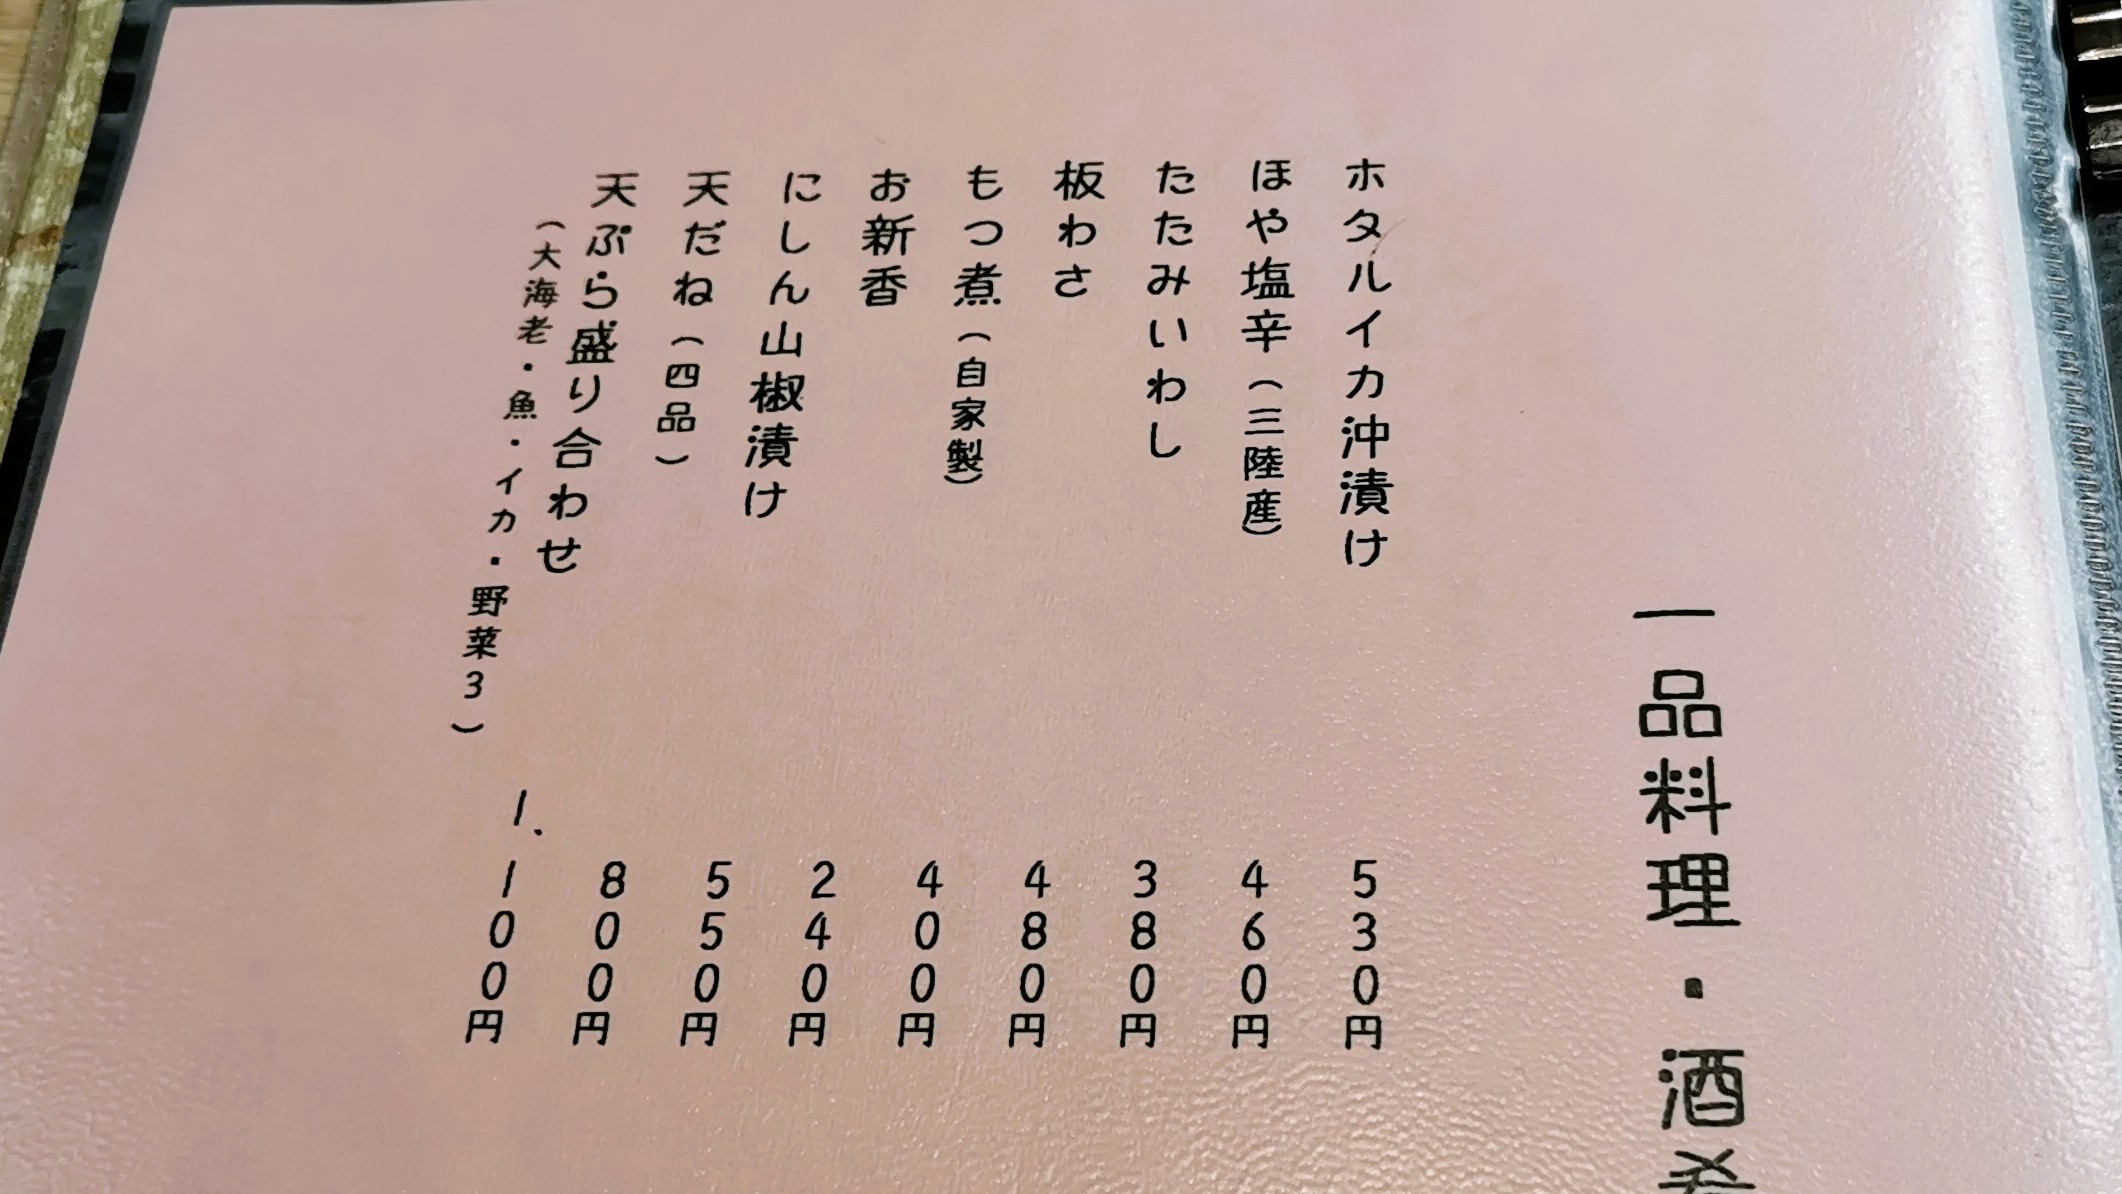 一品料理・酒肴
ホタルイカ沖漬け 530円
ほや塩辛(三陸産) 460円
たたみいわし 380円
板わさ 480円
もつ煮(自家製) 400円
お新香 240円
にしん山椒漬け 550円
天だね(四品) 800円
天ぷら盛り合わせ 1、100円
(大海老・魚・イカ・野菜3)